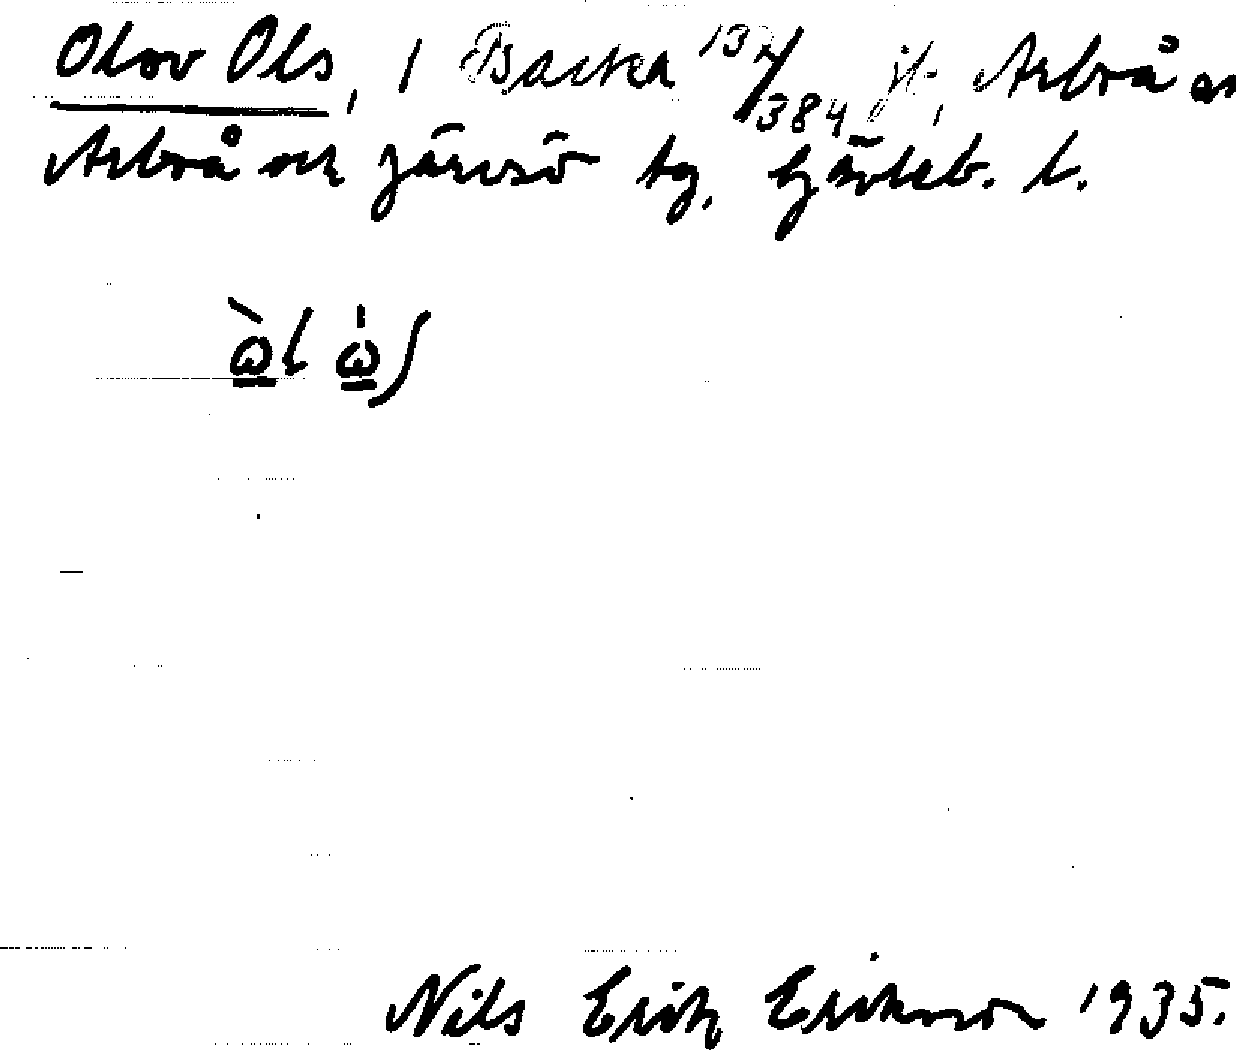 Olov Ols, 1 Backa 132/384 jt, Arbrå sn
Arbrå och Järvsö tg, Gävleb. l.
ὼl ω̍ʃ
Nils Erik Eriksson 1935.